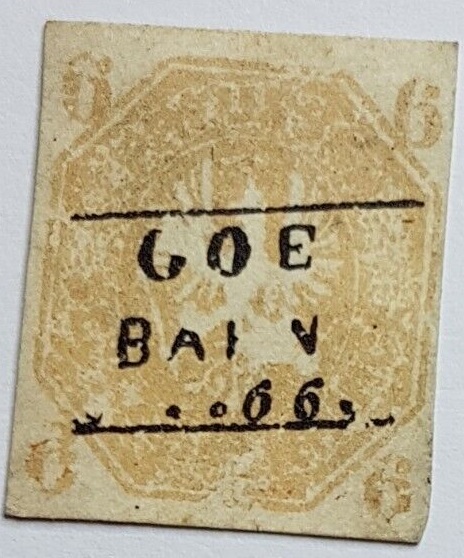 6 6
GOE
BAHN
66
6 6